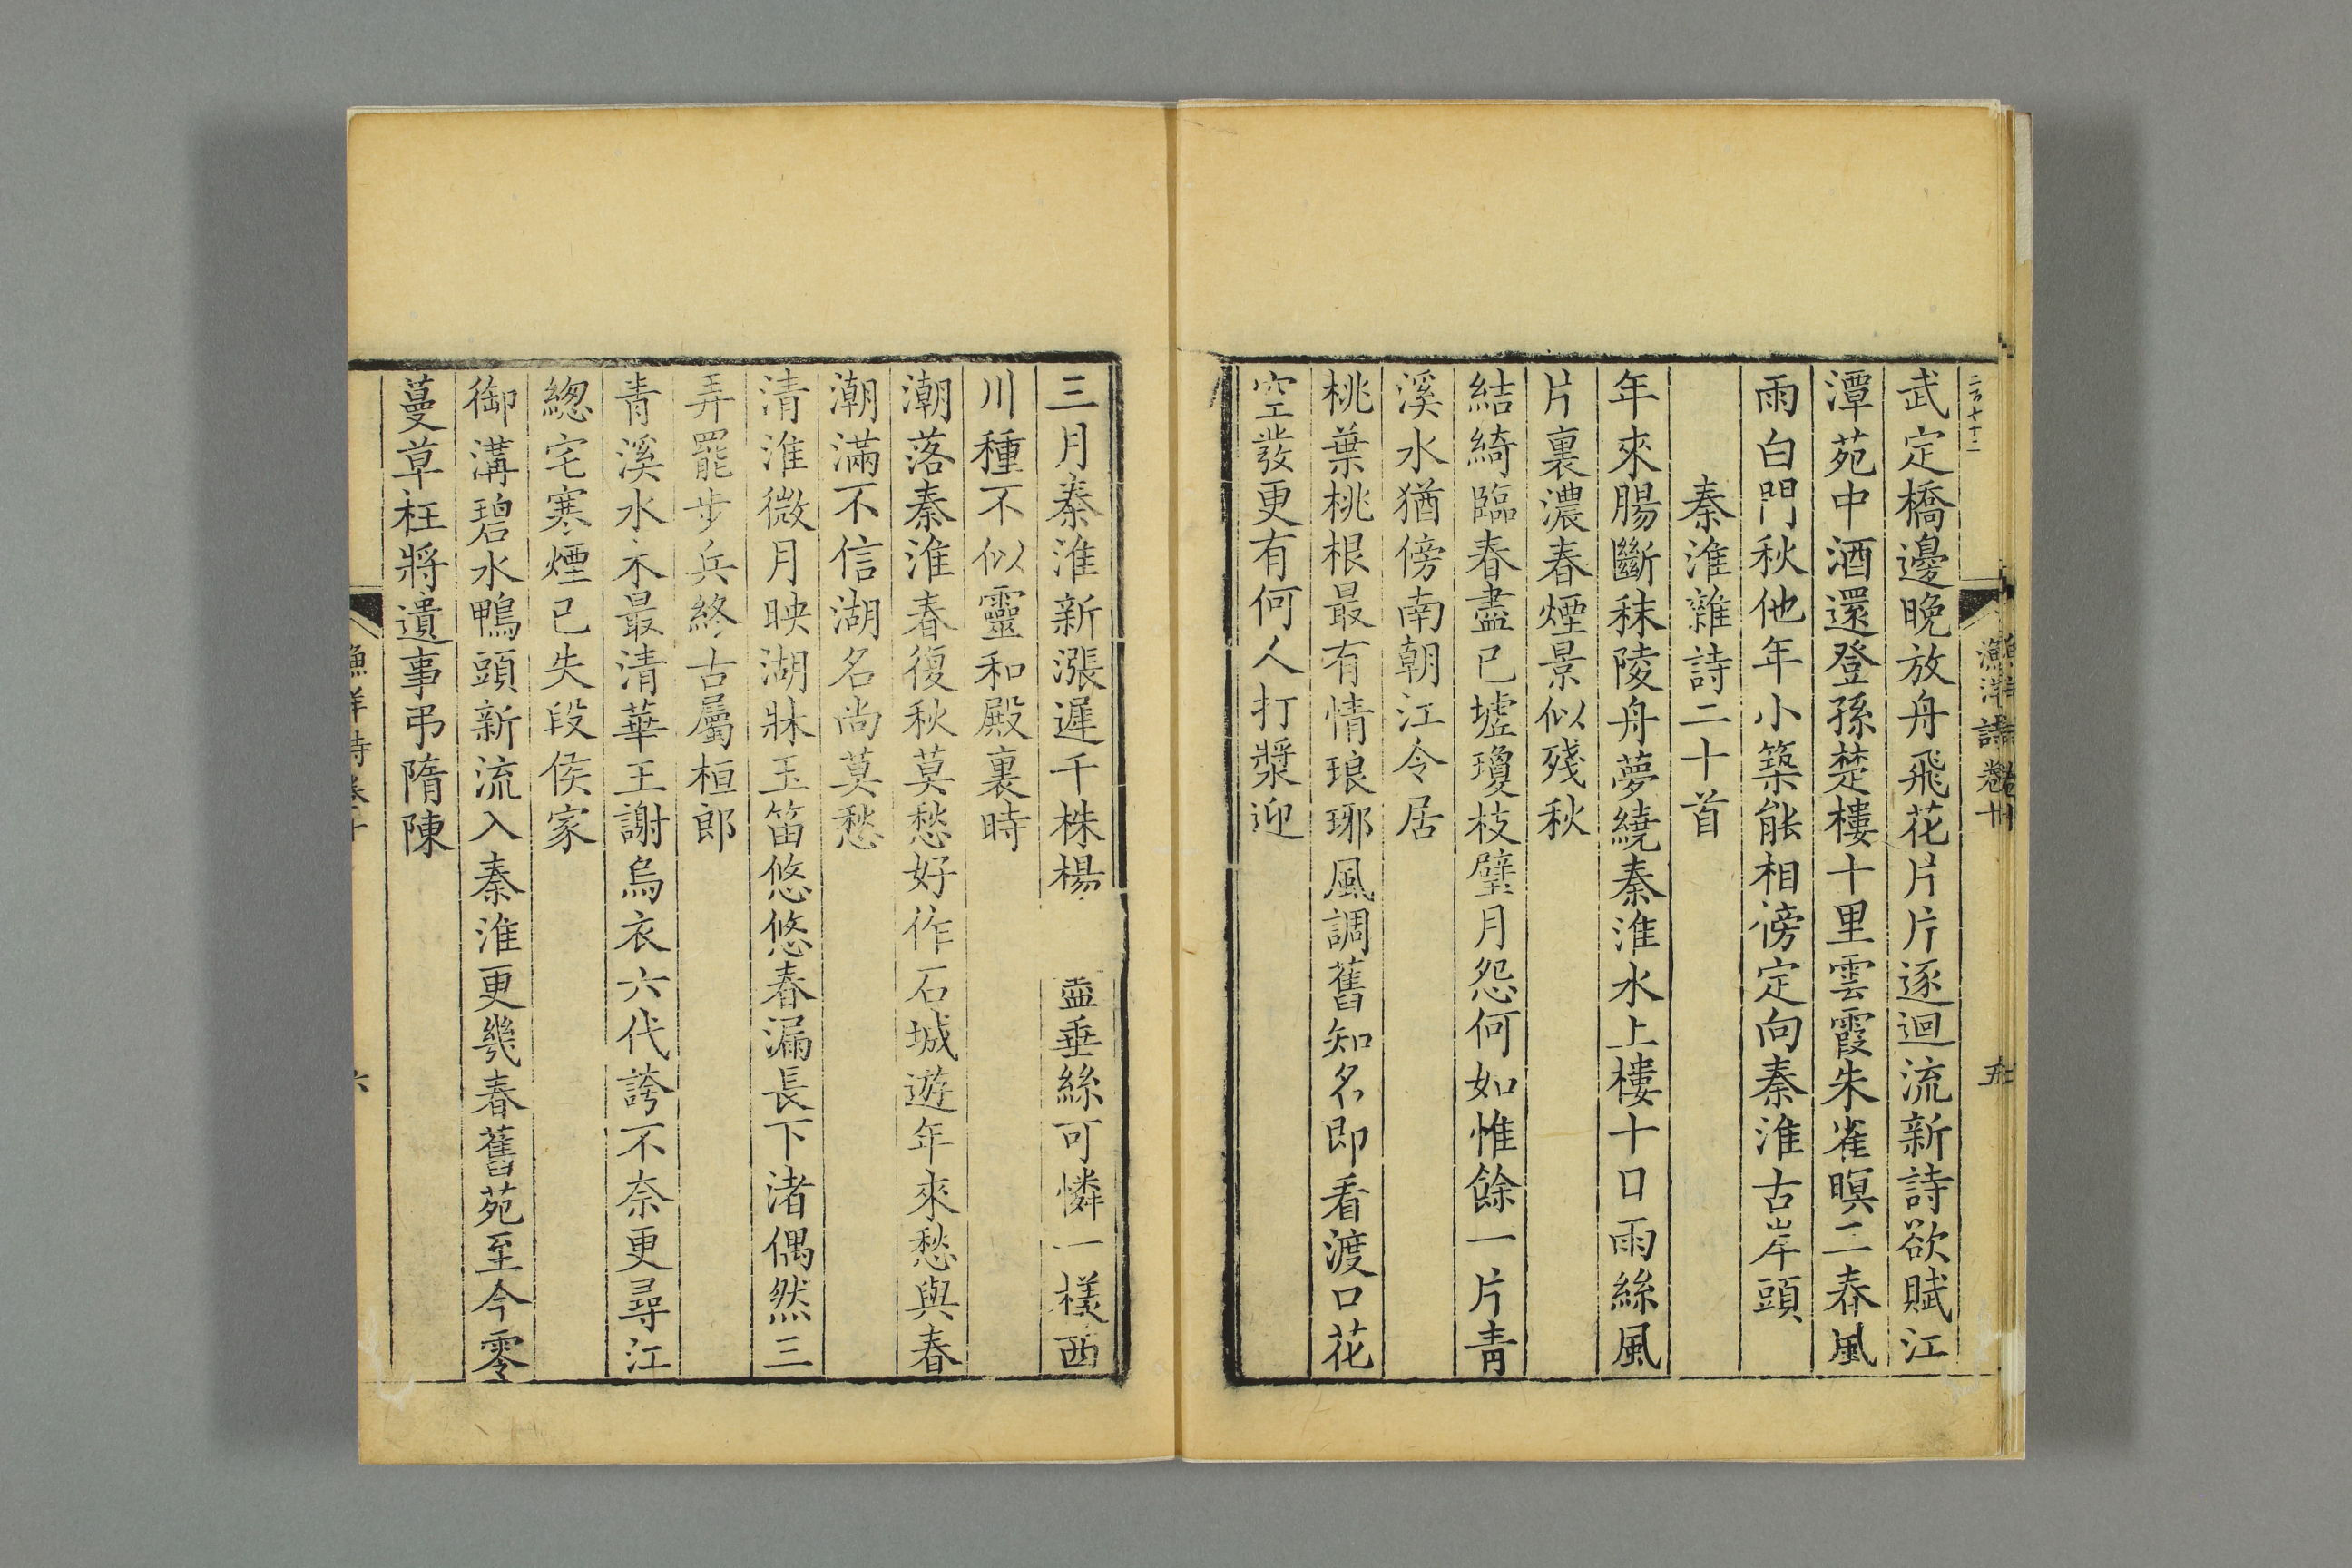 武定橋邊晚放舟飛花片片逐迴流新詩欲賦江
潭苑中酒還登孫楚樓十里雲霞朱雀暝二春風
雨白門秋他年小築能相傍定向秦淮古岸頭
秦淮雜詩二十首
年來腸斷秣陵舟夢繞秦淮水上樓十口雨絲風
片裏濃春煙景似殘秋
結綺臨春盡已墟瓊枝璧月怨何如惟餘一片青
溪水猶傍南朝江令居
桃葉桃根最有情琅琊風調舊知名即看渡口花
空發更有何人打槳迎
三月秦淮新漲遲千株楊 盡垂絲可憐一樣西
川種不似靈和殿裏時
潮落秦淮春復秋莫愁好作石城遊年來愁與春
潮滿不信湖名尚莫愁
清淮微月映湖牀玉笛悠悠春漏長下渚偶然三
弄罷步兵終古屬桓郎
青溪水木最清華王謝烏衣六代誇不奈更尋江
緫宅寒煙已失段侯家
御溝碧水鴨頭新流入秦淮更幾春舊苑至今零
蔓草枉將遺事弔隋陳
漁洋詩卷十
六